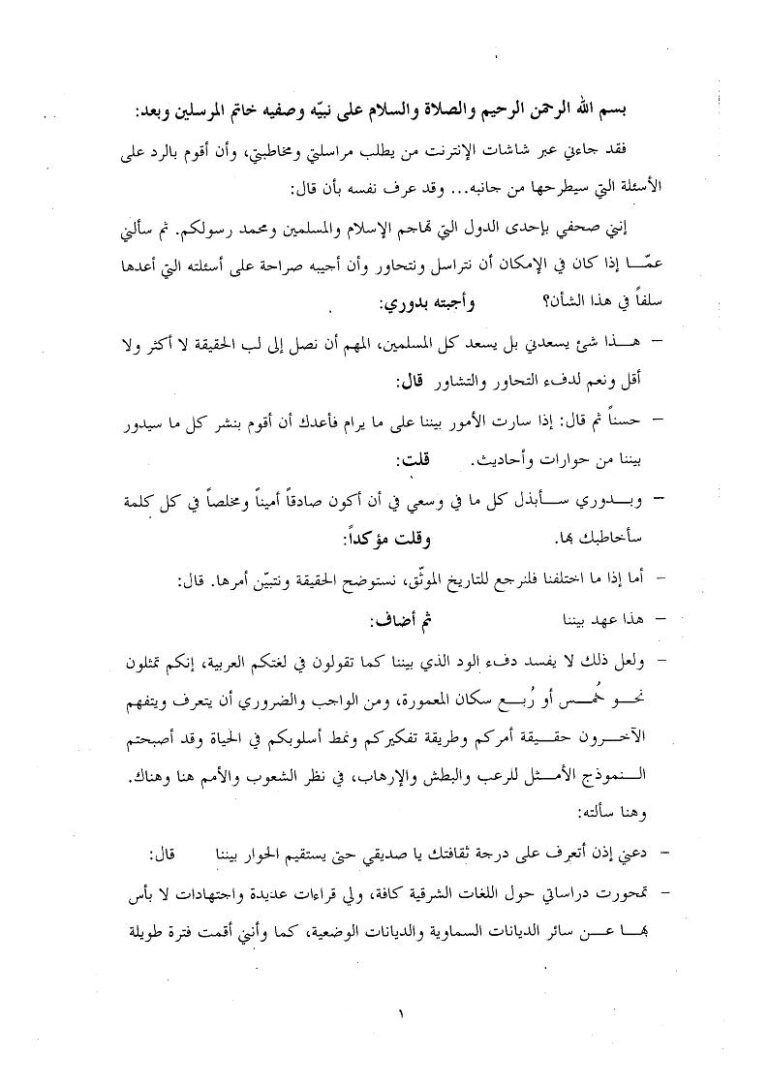 بسم الله الرحمن الرحيم والصلاة والسلام على نبيّه وصفيه خاتم المرسلين وبعد:
فقد جاءني عبر شاشات الإنترنت من يطلب مراسلتي ومخاطبتي، وأن أقوم بالرد على
الأسئلة التي سيطرحها من جانبه... وقد عرف نفسه بأن قال:
إنني صحفي بإحدى الدول التي تهاجم الإسلام والمسلمين ومحمد رسولكم. ثم سألني
عمّـا إذا كان في الإمكان أن نتراسل ونتحاور وأن أجيبه صراحة على أسئلته التي أعدها
سلفاً في هذا الشأن؟ وأجبته بدوري:
– هـذا شئ يسعدني بل يسعد كل المسلمين، المهم أن نصل إلى لب الحقيقة لا أكثر ولا
أقل ونعم لدفء التحاور والتشاور قال:
– حسناً ثم قال: إذا سارت الأمور بيننا على ما يرام فأعدك أن أقوم بنشر كل ما سيدور
بيننا من حوارات وأحاديث. قلت:
– وبـدوري سـأبذل كل ما في وسعي في أن أكون صادقاً أميناً ومخلصاً في كل كلمة
سأخاطبك بها. وقلت مؤكداً:
– أما إذا ما اختلفنا فلنرجع للتاريخ الموثّق، نستوضح الحقيقة ونتبيّن أمرها. قال:
– هذا عهد بيننا ثم أضاف:
– ولعل ذلك لا يفسد دفء الود الذي بيننا كما تقولون في لغتكم العربية، إنكم تمثلون
نحـو خُمـس أو رُبـع سكان المعمورة، ومن الواجب والضروري أن يتعرف ويتفهم
الآخـرون حقـيقة أمركم وطريقة تفكيركم ونمط أسلوبكم في الحياة وقد أصبحتم
الـنموذج الأمـثل للرعب والبطش والإرهاب، في نظر الشعوب والأمم هنا وهناك.
وهنا سألته:
– دعني إذن أتعرف على درجة ثقافتك يا صديقي حتى يستقيم الحوار بيننا قال:
– تمحورت دراساتي حول اللغات الشرقية كافة، ولي قراءات عديدة واجتهادات لا بأس
بهـا عـن سائر الديانات السماوية والديانات الوضعية، كما وأنني أقمت فترة طويلة
١